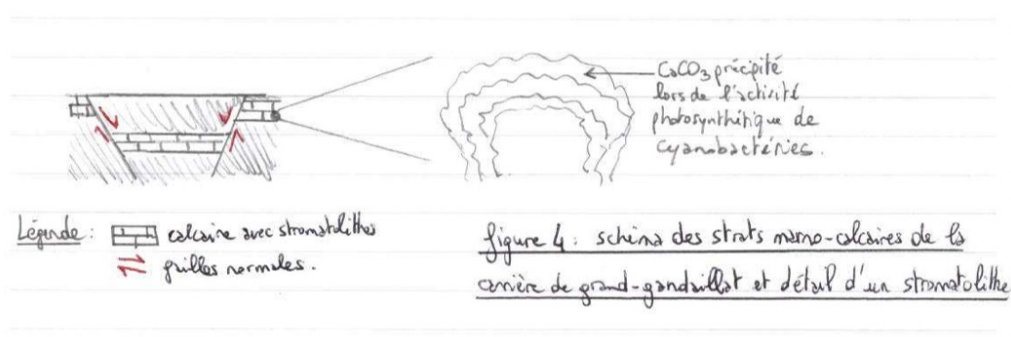 CaCO3 précipité
lors de l'activité
photosynthétique de
cyanobactéries.
Légende :
calcaire avec stromatolithes
failles normales.
figure 4 : schéma des strats marno-calcaires de la
carrière de grand-gandaillat et détail d'un stromatolithe